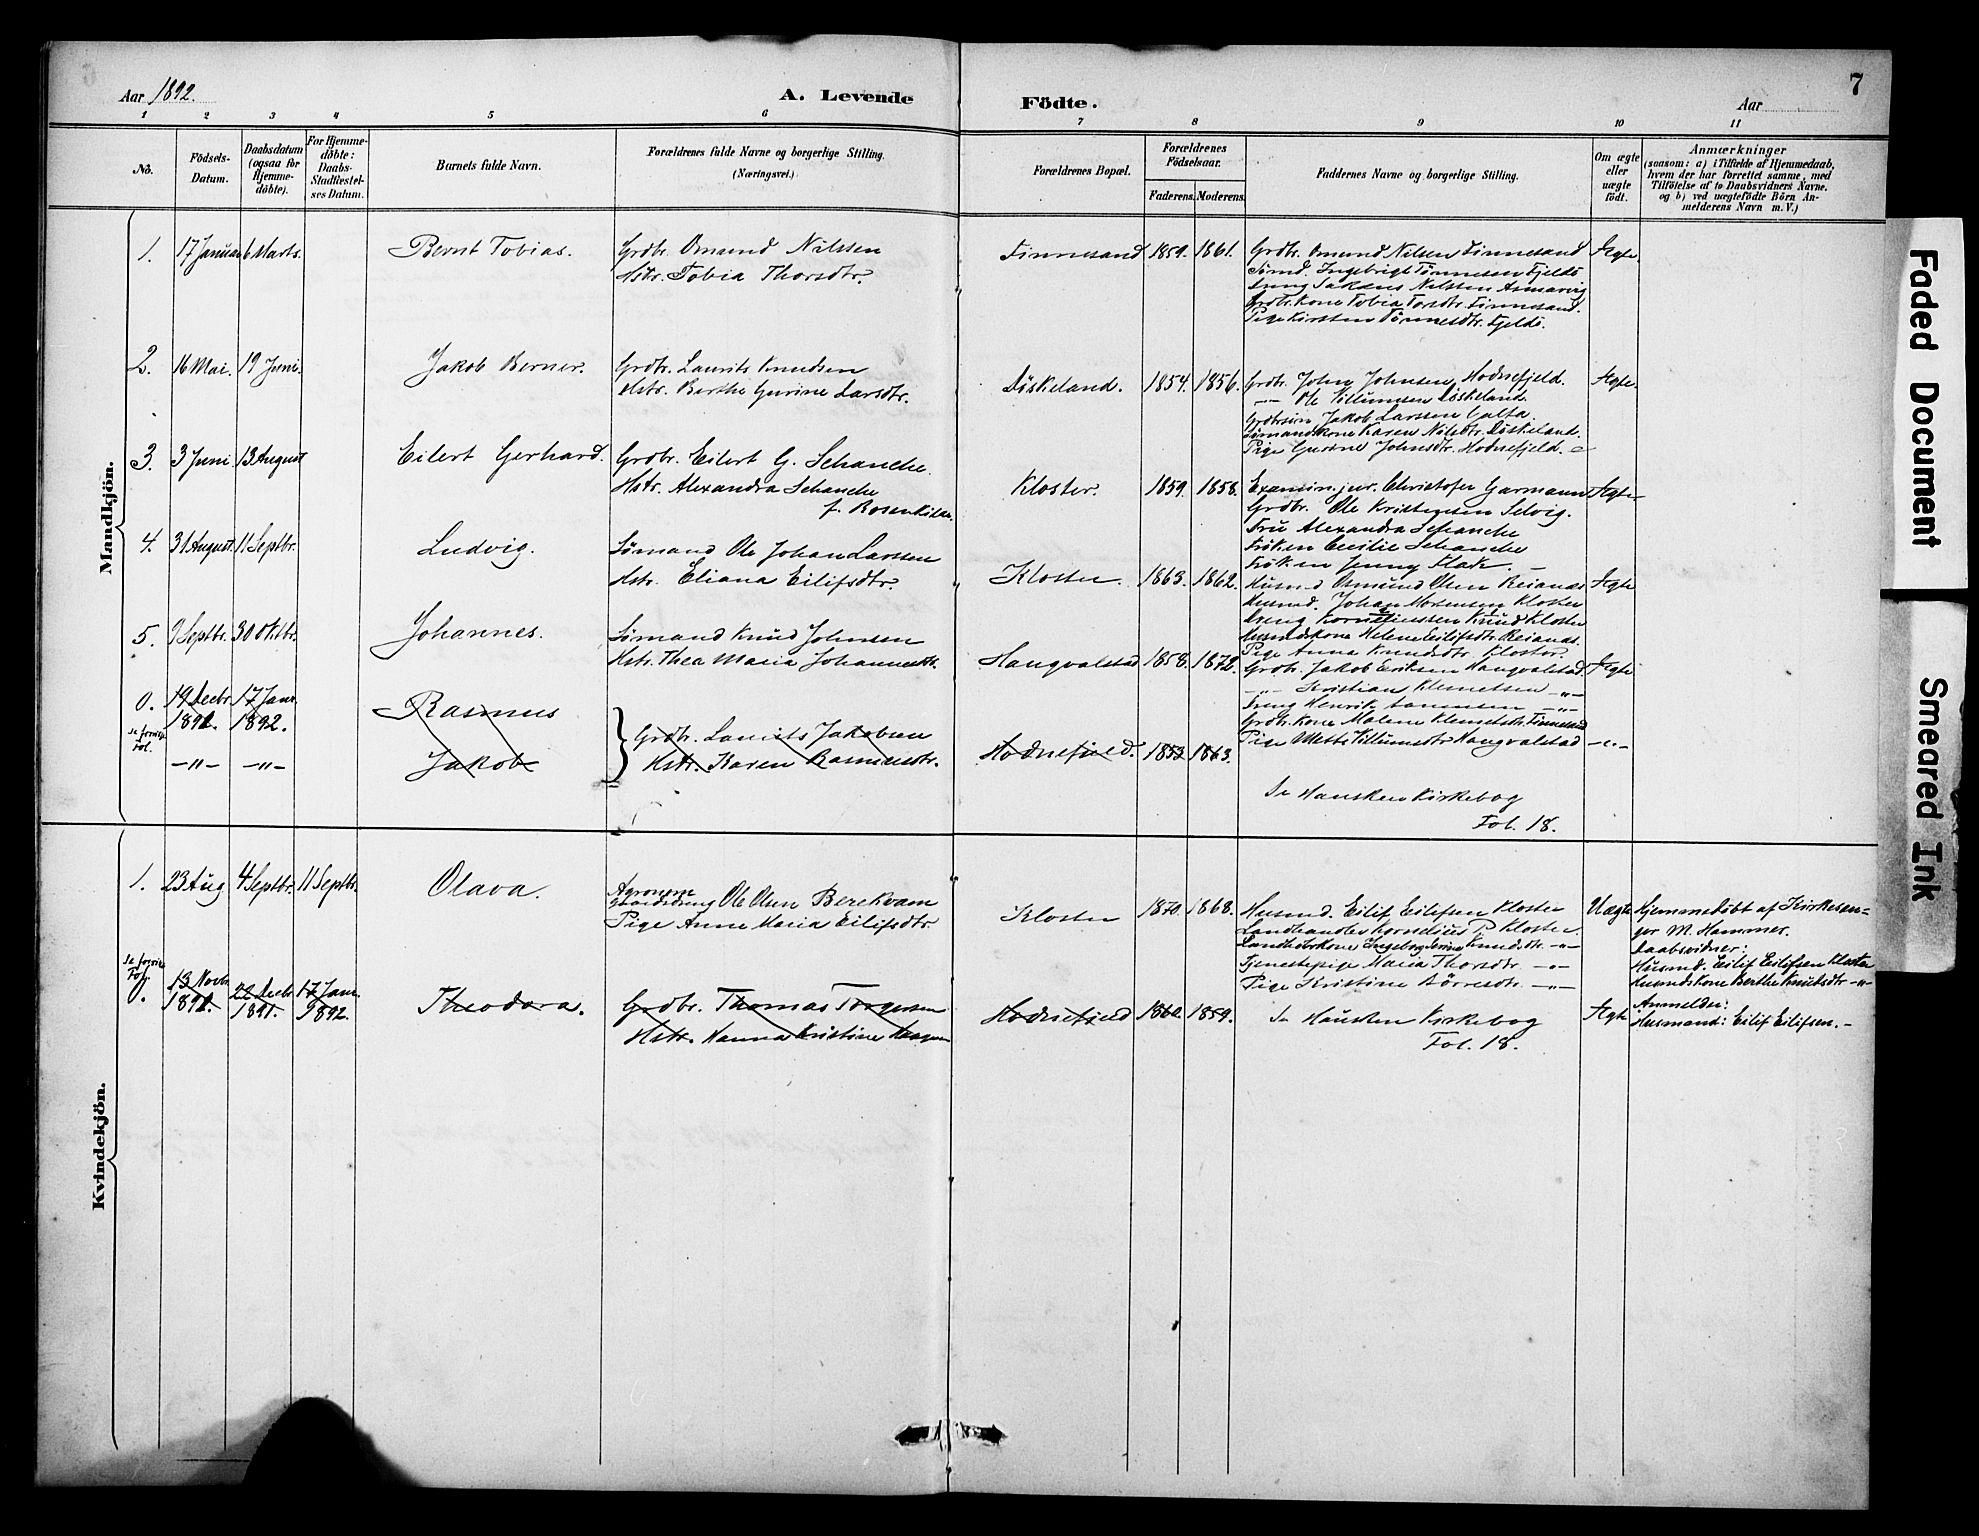 Aar 1892.
A. Levende
Födte.
Aar
7
1 2 3 4 5 6 7 8 9 10 11
No.
Födsels-
Datum.
Daabsdatum
(ogsaa for
Hjemme-
döbte).
For Hjemme-
döbte:
Daabs-
Stadfæstel-
ses Datum.
Barnets fulde Navn.
Forældrenes fulde Navne og borgerlige Stilling.
(Næringsvei.)
Forældrenes Bopæl.
Forældrenes
Födselsaar.
Faderens. Moderens.
Faddernes Navne og borgerlige Stilling.
Om ægte
eller
uægte
födt.
Anmærkninger
(saasom: a) i Tilfælde af Hjemmedaab,
hvem der har forrettet samme, med
Tilföielse af to Daabsvidners Navne.
og b) ved uægtefödte Börn An-
melderens Navn m. V.)
Mandkjön.
1. 17 Januar 6 Marts. Bernt Tobias.
Grdbr. Omund Nilssen
Hstr. Tobia Thorsdtr.
Finnesand 1859. 1861.
Grdbr. Omund Nilsen Finnesand
Sömd. Ingebrigt Tönnesen Fjeldö
Dreng Nilssen Asmarvig
Grdbr. Kone Tobia Torsdtr. Finnesand.
Pige Kirsten Tönnesdtr. Fjeldö.
Ægte.
2. 16 Mai. 19 Juni. Jakob Berner.
Grdbr. Laurits Knudsen
Hstr. Berthe Gurine Larsdtr.
Döskeland. 1854. 1856.
Grdbr. John Johnsen Hodnefjeld.
-"- Ole Villumsen Döskeland.
Grdbrsön Jakob Larssen Galta.
Sömandskone Karen Nilsdtr. Döskeland.
Pige Gurine Johnsdtr. Hodnefjeld.
Ægte.
3. 3 Juni 13 August Eilert Gerhard.
Grdbr. Eilert G. Schanche.
Hstr. Alexandra Schanche
f. Rosenkilde.
Kloster. 1859. 1858.
Examin. jur. Christofer Garmann
Grdbr. Ole Kristensen Selvig.
Fru Alexandra Schanche
Fröken Cecilie Schanche
Fröken Jenny
Ægte
4. 31 August. 11 Septbr. Ludvig.
Sömand Ole Johan Larssen
Hstr. Eliana Eilifsdtr.
Kloster 1863. 1862.
Husmd Osmund Olsen Reianes
Husmd. Johan Mosensen Kloster
Dreng Korneliussen Knud Kloster
Husmdskone Helene Eilifsdtr. Reianes.
Pige Anna Knudsdtr. Kloster.
Ægte
5. 9 Septbr. 30 Oktbr. Johannes.
Sömand Knud Johnsen
Hstr. Thea Maria Johannesdtr.
Haugvalstad 1858. 1872.
Grdbr. Jakob Eriksen Haugvalstad
-"- Kristian Klemetsen -"-
Dreng Henrik -"-
Grdbr. Kone Malene Klemetsdtr. Finnesand
Pige Mette Villumsdtr Haugvalstad
Ægte
0. 19 Decbr 1891. 17 Janr. 1892. Rasmus
Se forrige
Fol.
-"- -"- Jakob
Grdbr. Laurits Jakobsen
Hstr. Karen Rasmusdtr.
Hodnefjeld. 1853 1863. -"-
Se Hausken Kirkebog
Fol. 18.
Kvindekjön.
1. 23 Aug 4 Septbr. 11 Septbr. Olava.
Agronom
Ole Olsen Berekvam
Pige Anne Maria Eilifsdtr.
Kloster 1870. 1868.
Husmd. Eilif Eilifsen Kloster
Landhandler Kornelius P Kloster.
Landhdlrkone Ingeborg Serine Knudsdtr. -"-
Tjenestepige Maria Thorsdtr -"-
Pige Kristine Börresdtr. -"-
Uægte
Hjemmedöbt af Kirkesan=
ger M. Hammer.
Daabsvidner:
Husmd. Eilif Eilifsen Kloster
Husmdskone Berthe Knutsdtr -"-
Anmelder:
Husmand: Eilif Eilifsen.
Se forrige
Fol.
0. 13 Novbr 1891. 22 Decbr 1891. 17 Janr. 1892. Theodora.
Grdbr. Thomas Torgersen
Hstr. Hanna Kristine
Hodnefjeld 1860. 1859.
Se Hausken Kirkebog
Fol. 18.
Ægte
Faded Document
Smeared Ink